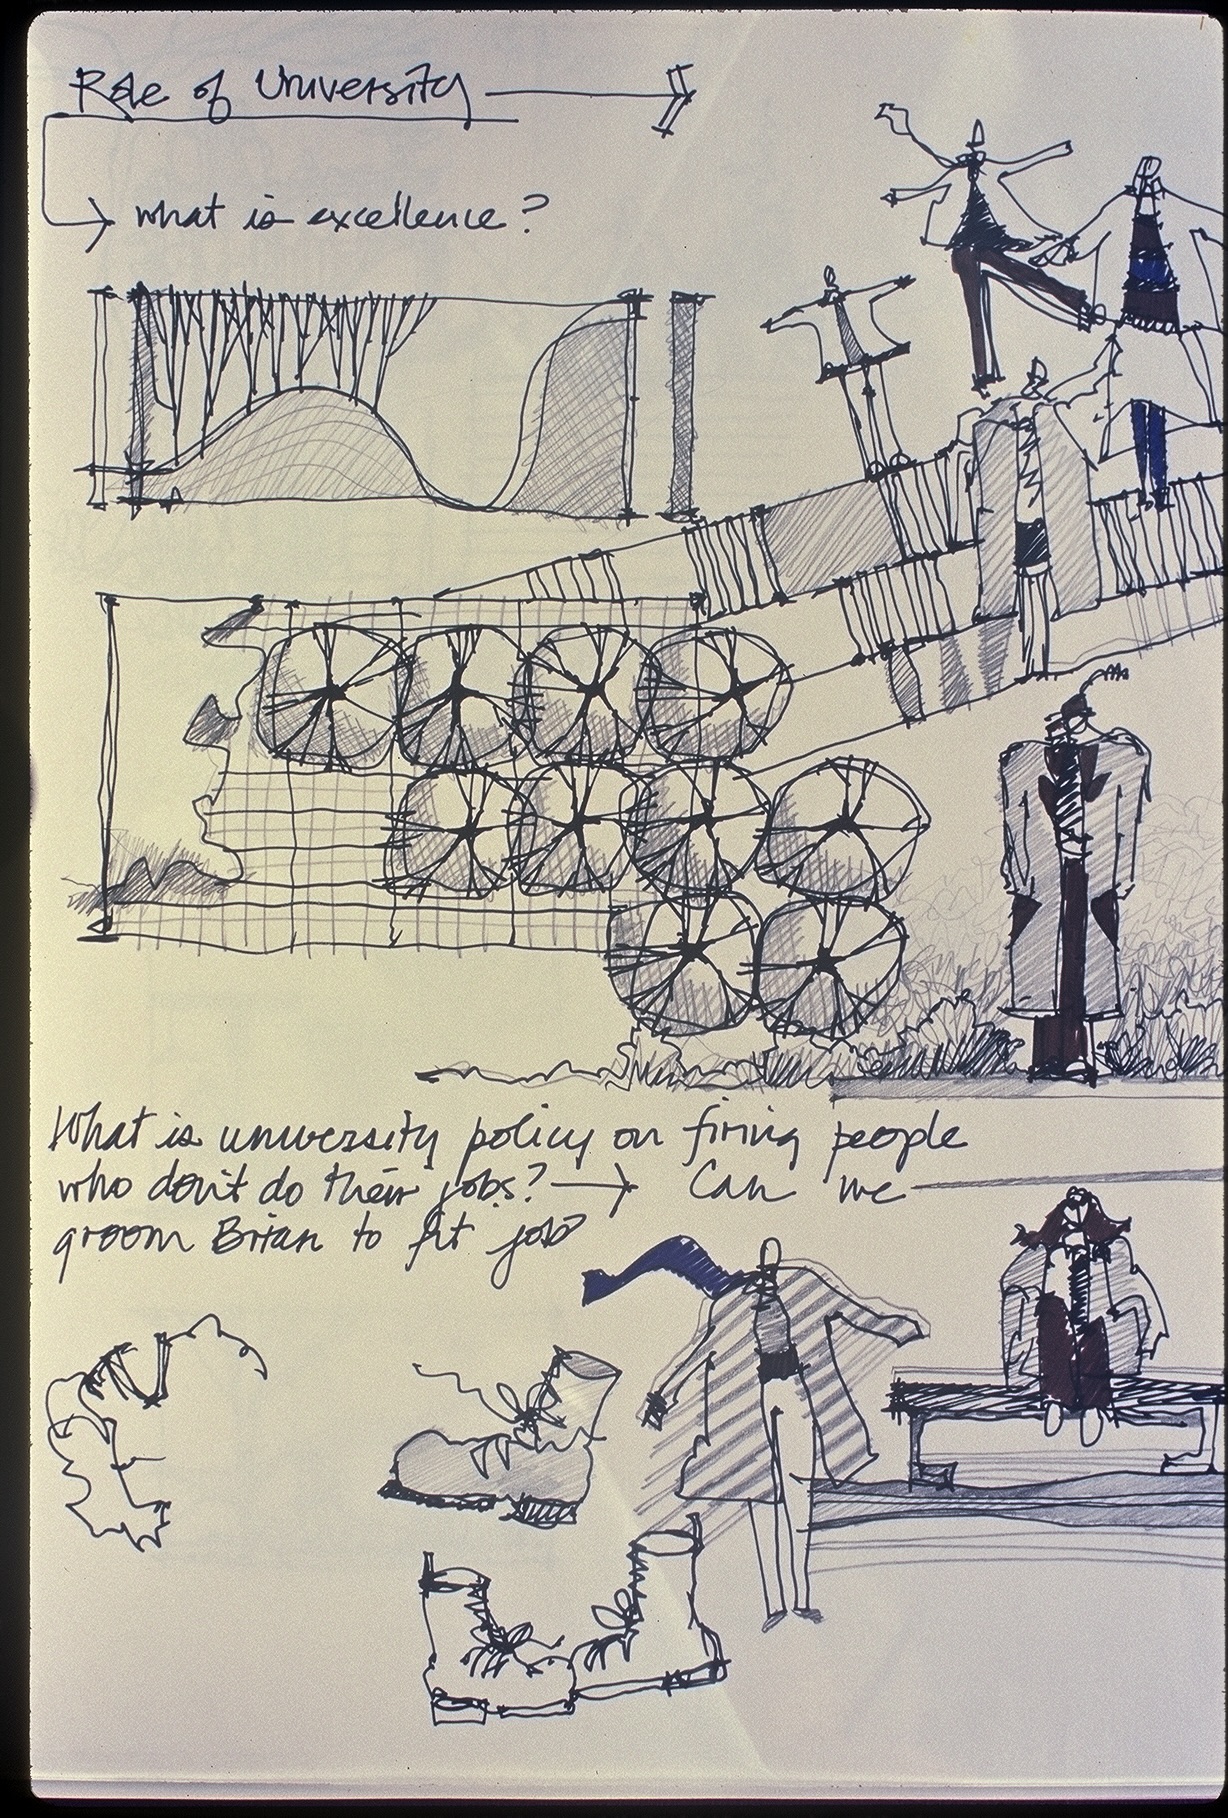 Role of University
what is excellence?
What is university policy on firing people
who don't do their jobs? → Can we
groom Brian to fit job?